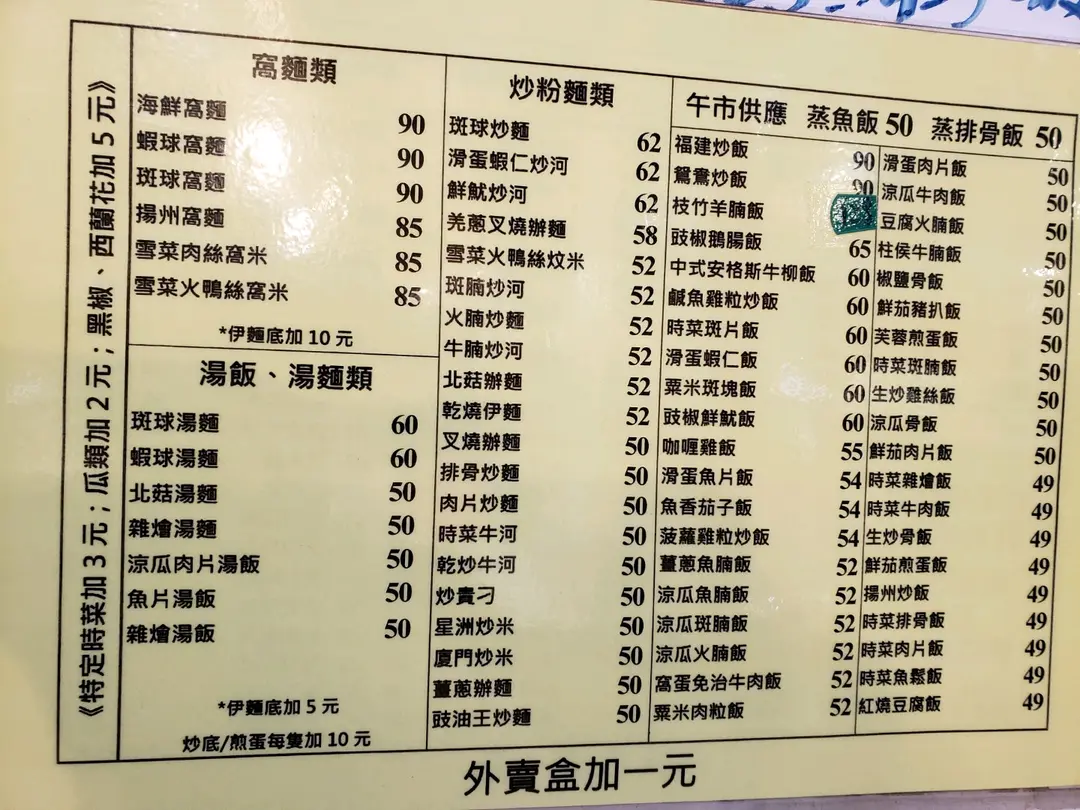 《特定時菜加3元；瓜類加2元；黑椒、西蘭花加5元》
窩麵類
海鮮窩麵 90
蝦球窩麵 90
斑球窩麵 90
揚州窩麵 85
雪菜肉絲窩米 85
雪菜火鴨絲窩米 85
*伊麵底加 10 元
湯飯、湯麵類
斑球湯麵 60
蝦球湯麵 60
北菇湯麵 50
雜燴湯麵 50
涼瓜肉片湯飯 50
魚片湯飯 50
雜燴湯飯 50
*伊麵底加 5 元
炒底/煎蛋每隻加 10 元
炒粉麵類
斑球炒麵 62
滑蛋蝦仁炒河 62
鮮魷炒河 62
羌蔥叉燒辦麵 58
雪菜火鴨絲炆米 52
斑腩炒河 52
火腩炒麵 52
牛腩炒河 52
北菇辦麵 52
乾燒伊麵 52
叉燒辦麵 50
排骨炒麵 50
肉片炒麵 50
時菜牛河 50
乾炒牛河 50
炒貴刁 50
星洲炒米 50
廈門炒米 50
薑蔥辦麵 50
豉油王炒麵 50
午市供應 蒸魚飯 50 蒸排骨飯 50
福建炒飯 90
鴛鴦炒飯 90
枝竹羊腩飯
豉椒鵝腸飯 65
中式安格斯牛柳飯 60
鹹魚雞粒炒飯 60
時菜斑片飯 60
滑蛋蝦仁飯 60
粟米斑塊飯 60
豉椒鮮魷飯 60
咖喱雞飯 55
滑蛋魚片飯 54
魚香茄子飯 54
菠蘿雞粒炒飯 54
薑蔥魚腩飯 52
涼瓜魚腩飯 52
涼瓜斑腩飯 52
涼瓜火腩飯 52
窩蛋免治牛肉飯 52
粟米肉粒飯 52
滑蛋肉片飯 50
涼瓜牛肉飯 50
豆腐火腩飯 50
柱侯牛腩飯 50
椒鹽骨飯 50
鮮茄豬扒飯 50
芙蓉煎蛋飯 50
時菜斑腩飯 50
生炒雞絲飯 50
涼瓜骨飯 50
鮮茄肉片飯 50
時菜雜燴飯 49
時菜牛肉飯 49
生炒骨飯 49
鮮茄煎蛋飯 49
揚州炒飯 49
時菜排骨飯 49
時菜肉片飯 49
時菜魚鬆飯 49
紅燒豆腐飯 49
外賣盒加一元